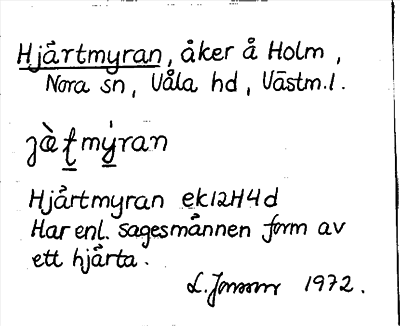 Hjärtmyran, åker å Holm,
Nora sn, Våla hd, Västm.l.
jὰtmýran
Hjärtmyran ek12H4d
Har enl. sagesmännen form av
ett hjärta.
L. Jonsson 1972.